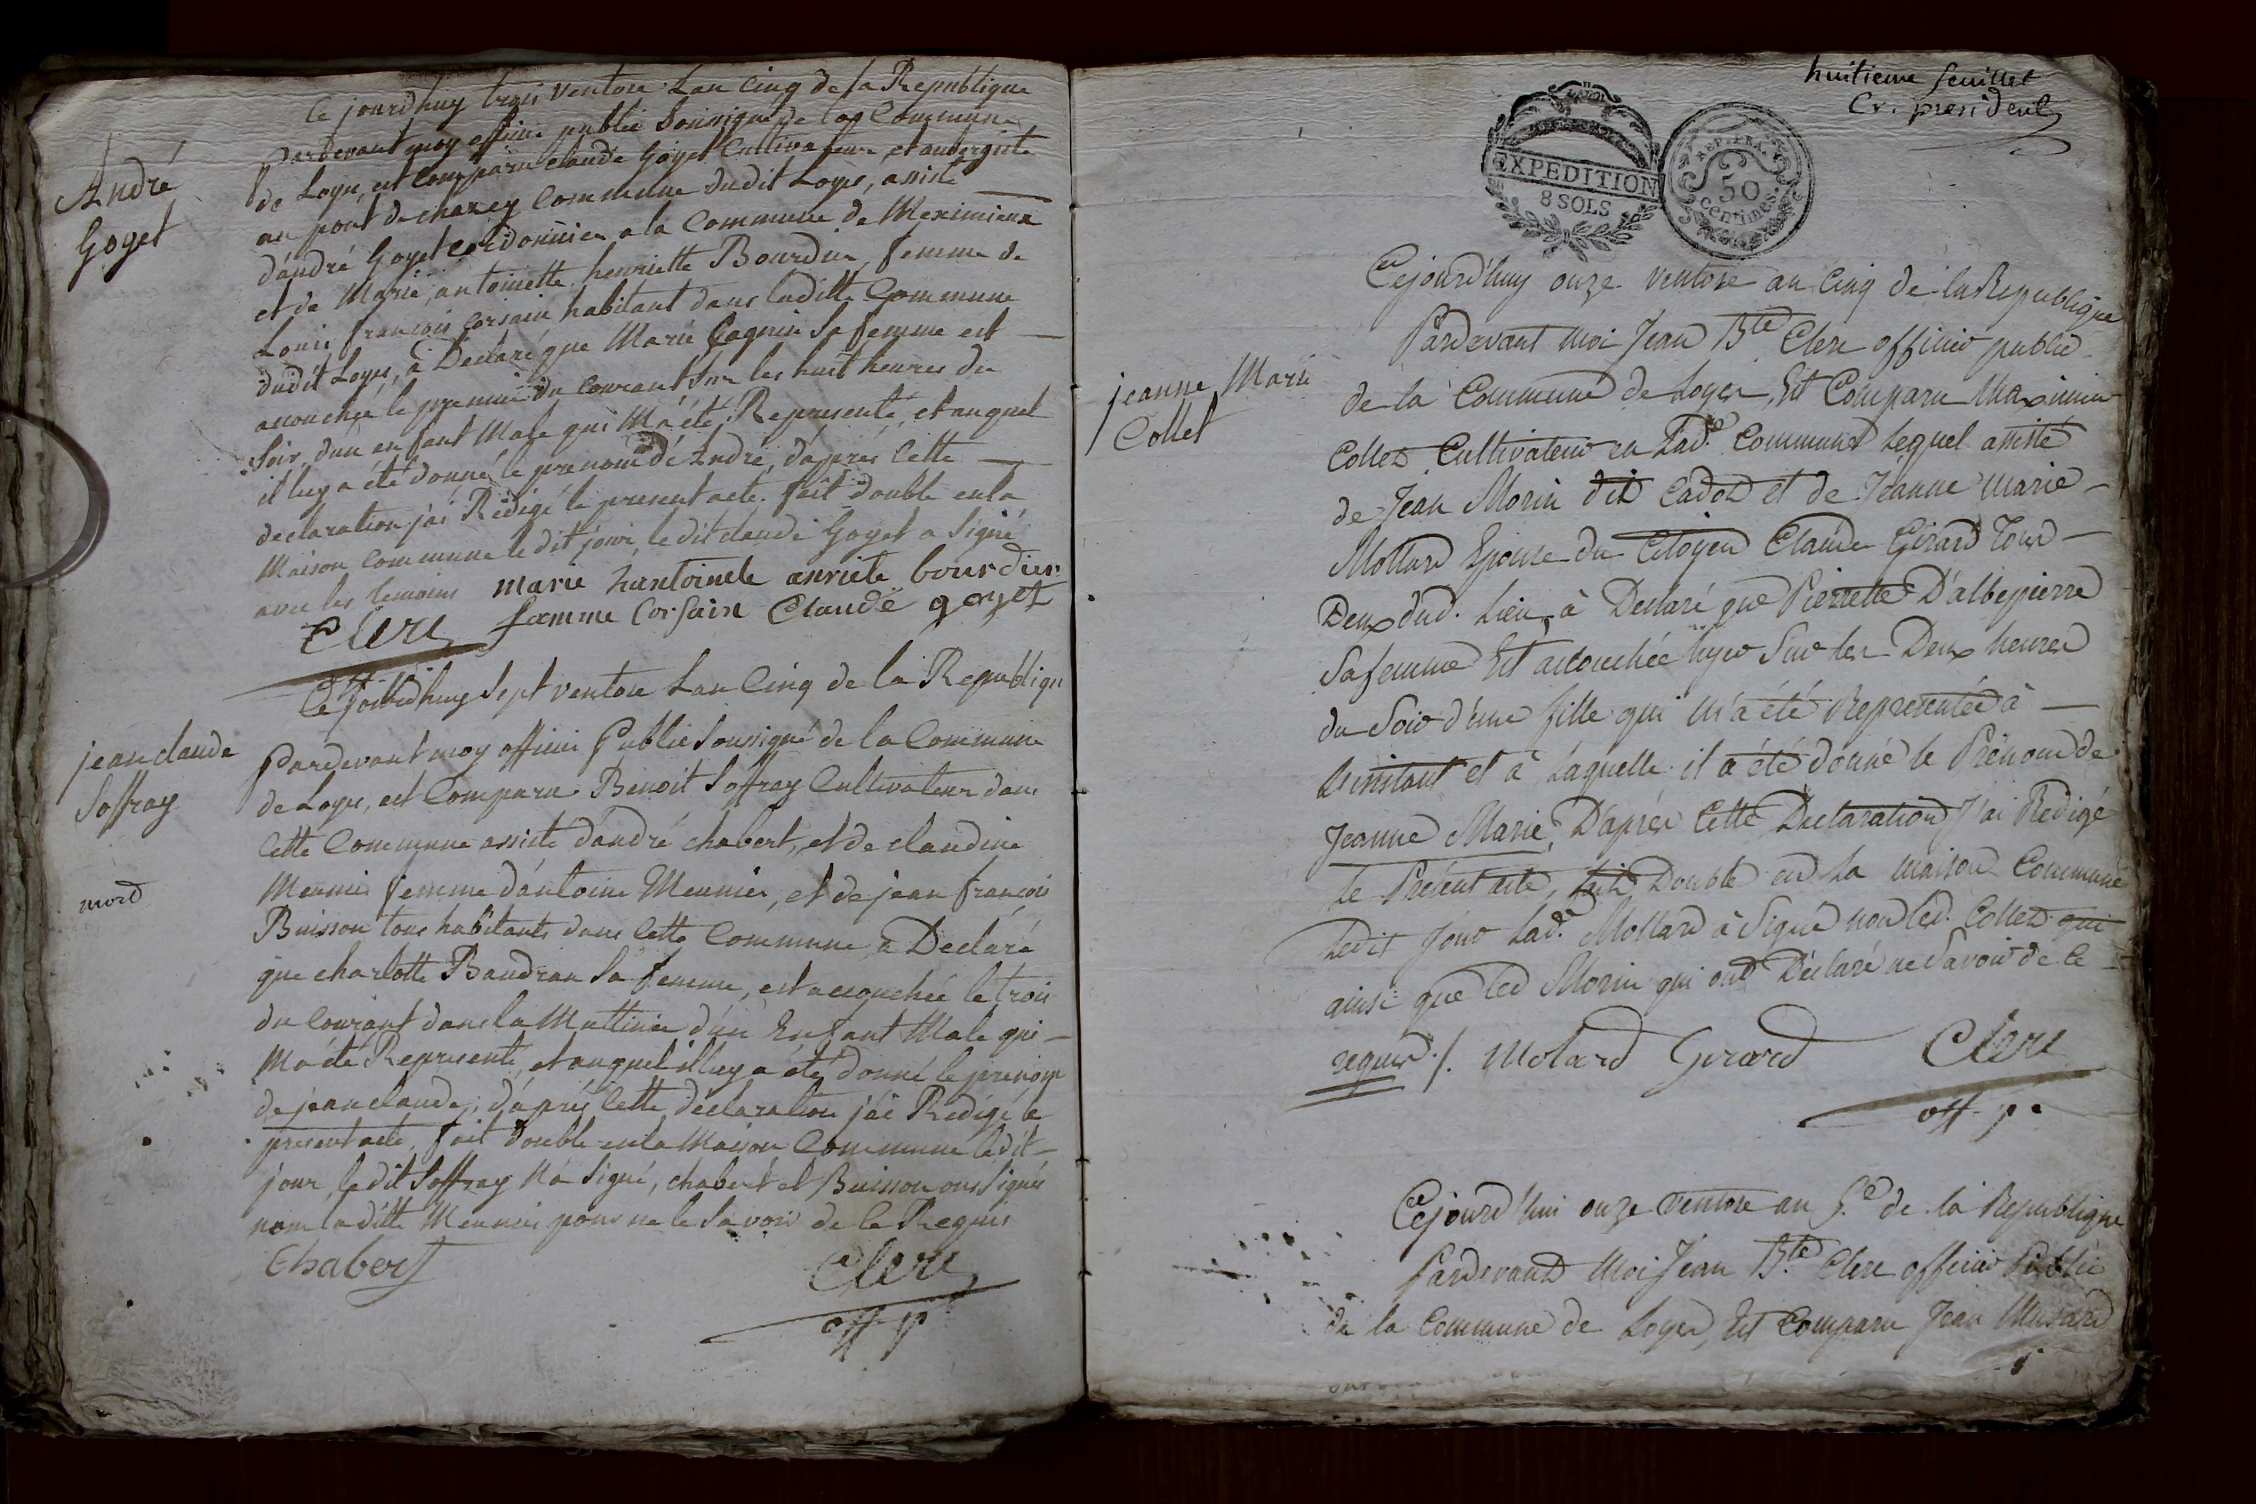 Ce jourdhuy trois ventose Lan Cinq de la Republique
Pardevant moy officier public Soussigné de la Commune
de Loyes, est Comparu Claude Goyet Cultivateur et aubergiste
au pont de chazey Commune dudit Loyes, assisté
d'andré Goyet cordonnier a la Commune de Meximieux
et de Marie antoinette henriette Bourdier, femme de
Louis françois Corsain habitant dans laditte Commune
dudit Loyes, à Declaré que Marie Gagnin Sa femme est
acouchée le premier du Courant Sur les huit heures du
Soir, d'un enfant Male qui M'a été Representé, et auquel
il luy a été donné le prenom de André, d'après Cette
declaration j'ai Redigé le present acte. fait double en la
Maison Commune le dit jour, le dit Claude Goyet a Signé
avec les temoins marie hantoinete anriete bourdier
famme Corsain Claude goyet
Clerc
André
Goyet
Ce Jourdhuy Sept ventose Lan Cinq de la Republique
Pardevant moy officier Public Soussigné de la Commune
de Loyes, est Comparu Benoit Soffray Cultivateur dans
Cette Commune assisté d'andré chabert, et de claudine
Meunier femme d'antoine Meunier, et de jean françois
Buisson tous habitants dans Cette Commune à Declaré
que charlotte Baudran Sa femme, est acouchée le trois
du Courant dans la Mattinée d'un Enfant Male qui
M'a été Representé, et auquel il luy a été donné le prenom
de jean claude, d'après Cette déclaration j'ai Redigé le
present acte, fait double en la Maison Commune le dit
jour, le dit Soffray N'a Signé, chabert et Buisson ons Signés
non laditte Meunier pour ne le Savoir de Ce Requis
Chabert
Clerc
off. p.
jean claude
Soffray
mord
huitieme feuillet
Cr. president
EXPEDITION
8 SOLS
REP. FRA.
50
centimes.
Cejourd'huy onze ventose an Cinq de la Republique
Pardevant moi Jean Bte Clerc officier public
de la Commune de Loyes, Est Comparu Maximin
Collet Cultivateur en Lad.e Commune Lequel assisté
de Jean Morin dit Cadot et de Jeanne Marie
Mollard Epouse du Citoyen Claude Girard Tous
Deux dud. Lieu, à Declaré que Pierrette D'albepierre
Sa femme Est acouchée hyer Sur les Deux heures
du Soir d'une fille qui M'a été Representée à
L'instant et à Laquelle il a été donné le Prénom de
Jeanne Marie, D'après Cette Declaration J'ai Redigé
le Présent acte, fait Double en La maison Commune
Ledit Jour Lad.e Mollard à Signé non led. Collet qui
ainsi que led Morin qui ont Déclaré ne Savoir de Ce
requis ./. Molard Gerard Clerc
off. p.
jeanne Marie
Collet
Cejourd'hui onze ventose an 5.e de la Republique
Pardevant Moi Jean Bte Clerc officier Public
de la Commune de Loyes, Est Comparu Jean